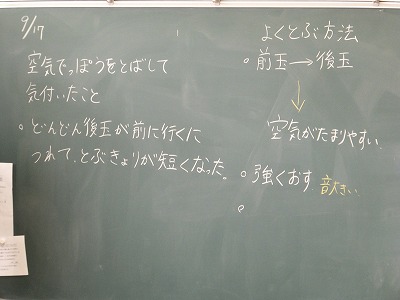 9/17
空気でっぽうをとばして
気付いたこと
○どんどん後玉が前に行くに
つれて、とぶきょりが短くなった。
よくとぶ方法
○前玉→後玉
↓
空気がたまりやすい
○強くおす 音大きい
○